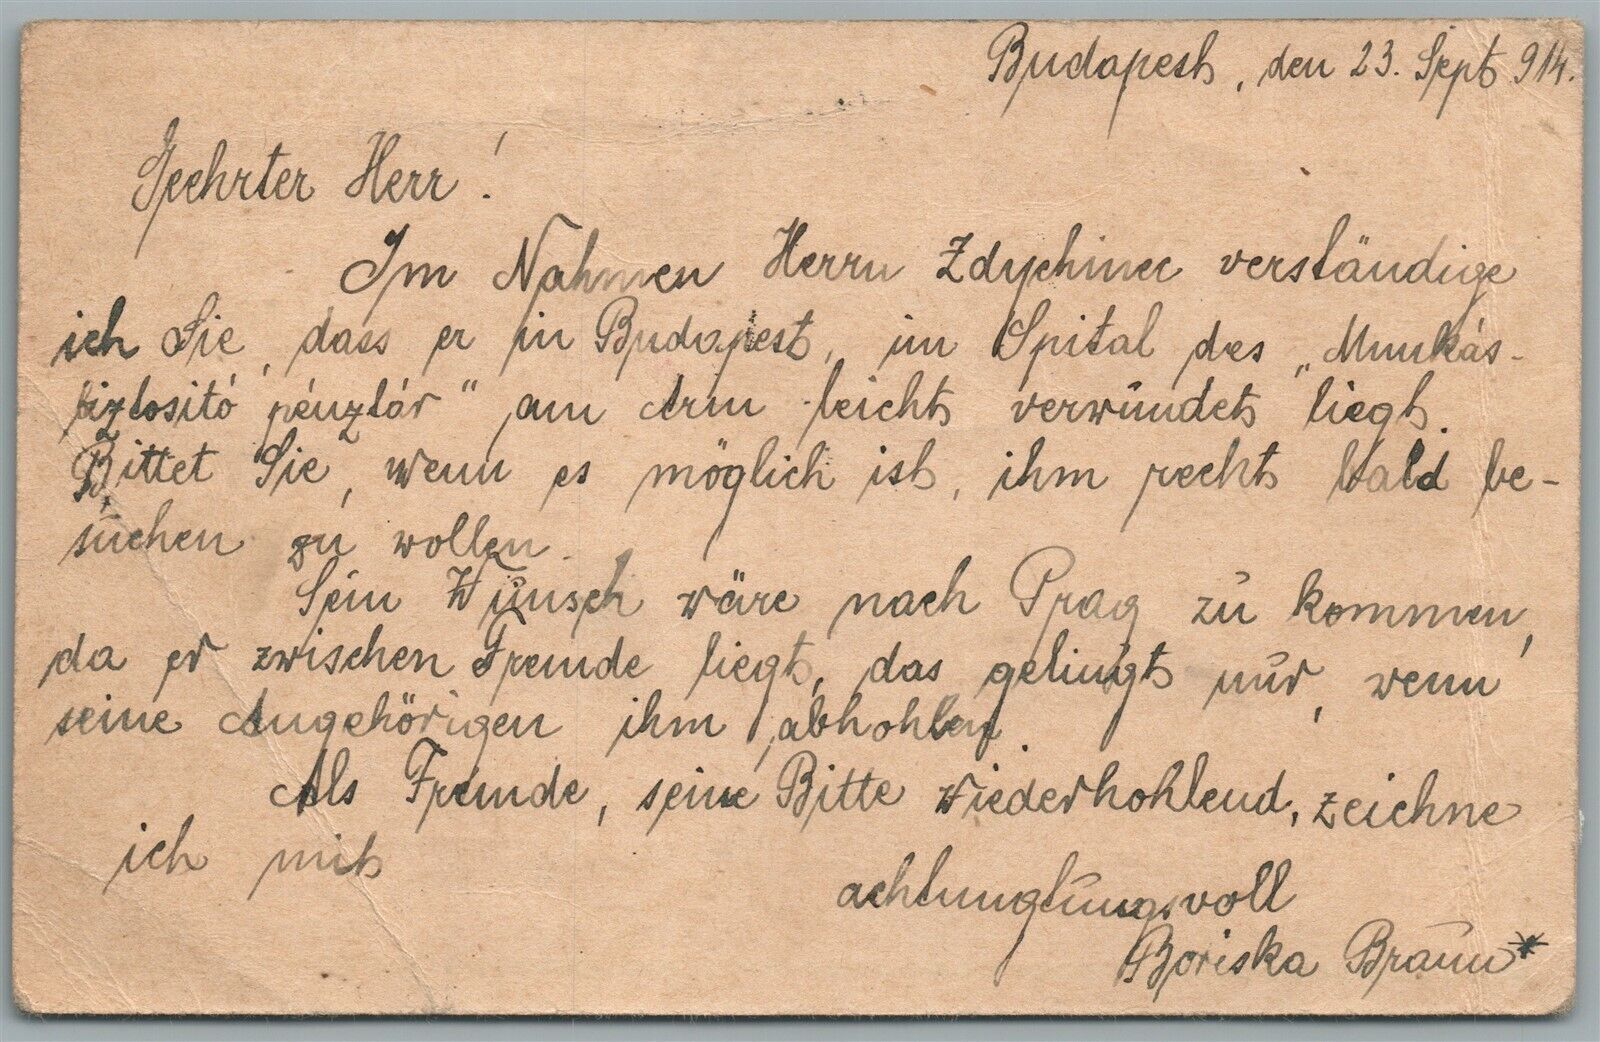 Budapest, den 23. Sept 914.
Geehrter Herr!
Im Nahmen Herrn Zdychinec verständige
ich Sie, dass er in Budapest, im Spital des „Munkás-
biztositó pénztár" am Arm leicht verwundet liegt.
Bittet Sie, wenn es möglich ist, ihm recht bald be-
suchen zu wollen.
Sein Wunsch wäre nach Prag zu kommen,
da er zwischen Fremde liegt, das gelingt nur, wenn
seine Angehörigen ihm abhohlen.
Als Fremde, seine Bitte wiederhohlend, zeichne
ich mit
achtunglungsvoll
Boriska Braun*